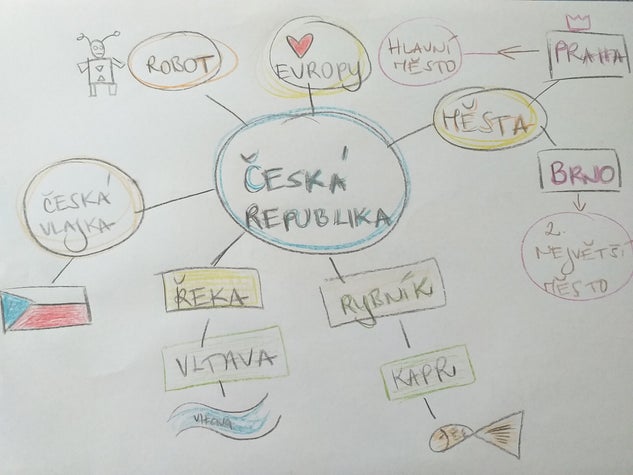 ROBOT
EVROPY
HLAVNÍ
MĚSTO
PRAHA
MĚSTA
BRNO
2.
NEJVĚTŠÍ
MĚSTO
ČESKÁ
REPUBLIKA
ČESKÁ
VLAJKA
ŘEKA
RYBNÍK
VLTAVA
KAPR